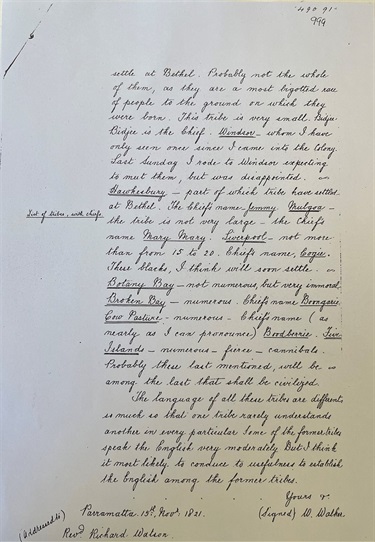 490 91-
999
settle at Bethel. Probably not the whole
of them, as they are a most bigotted race
of people to the ground on which they
were born. This tribe is very small. Bidjee
Bidjee is the Chief. Windsor - whom I have
only seen once since I came into the Colony.
Last Sunday I rode to Windsor expecting
to meet them, but was disappointed.
Hawkesbury - part of which tribe have settled
at Bethel. The Chiefs name Jemmy. Mulgoa -
List of tribes, with chiefs.
the tribe is not very large - the Chiefs
name Mary Mary. Liverpool - not more
than from 15 to 20. Chiefs name, Cogie.
These blacks, I think will soon settle.
Botany Bay - not numerous, but very immoral.
Broken Bay - numerous. Chiefs name Boongarie
Cow Pasture - numerous - Chiefs name (as
nearly as I can pronounce) Boodberrie. Five
Islands - numerous - fierce - cannibals.
Probably these last mentioned, will be
among the last that shall be civilized.
The language of all these tribes are different,
is much so that one tribe rarely understands
another in every particular. Some of the former tribes
speak the English very moderately. But I think
it most likely to conduce to usefulness to establish
the English among the former tribes.
Yours &c.
Parramatta. 15th Novr 1821. (Signed) W. Walker
(addressed to)
Revd. Richard Watson.